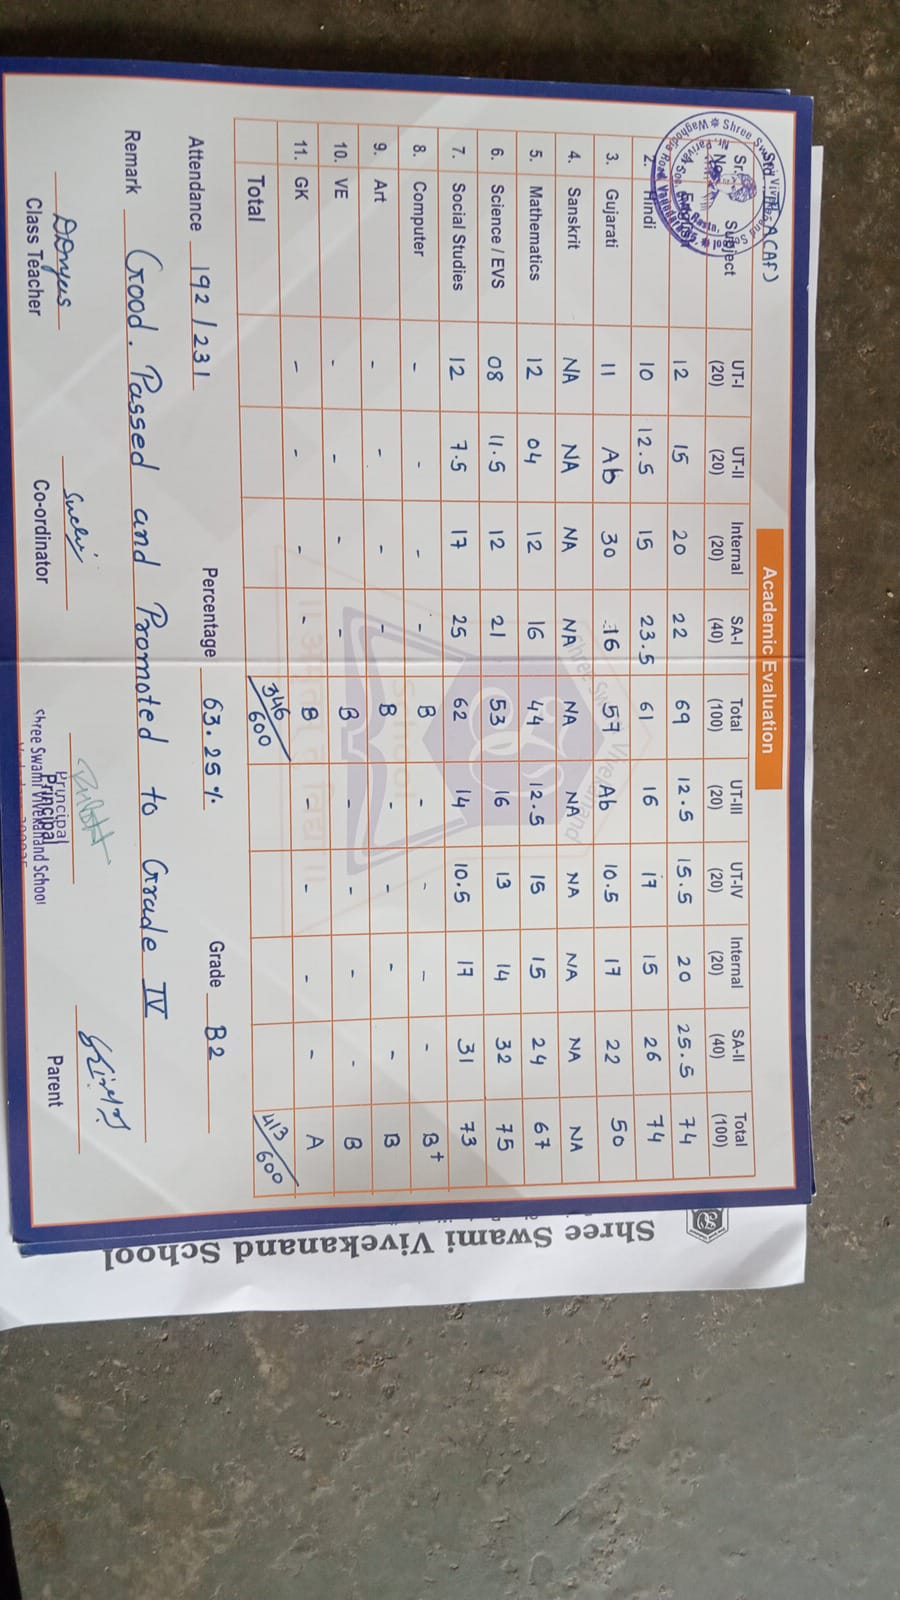 Academic Evaluation
Std. III A (AF)
Sr. No. Subject UT-I (20) UT-II (20) Internal (20) SA-I (40) Total (100) UT-III (20) UT-IV (20) Internal (20) SA-II (40) Total (100)
12 15 20 22 69 12.5 15.5 20 25.5 74
2. Hindi 10 12.5 15 23.5 61 16 17 15 26 74
3. Gujarati 11 Ab 30 16 57 Ab 10.5 17 22 50
4. Sanskrit NA NA NA NA NA NA NA NA NA NA
5. Mathematics 12 04 12 16 44 12.5 15 15 24 67
6. Science / EVS 08 11.5 12 21 53 16 13 14 32 75
7. Social Studies 12 7.5 17 25 62 14 10.5 17 31 73
8. Computer - - - - B - - - - B+
9. Art - - - - B - - - - B
10. VE - - - - B - - - - B
11. GK - - - - B - - - - A
Total 346/600 413/600
Attendance 192/231 Percentage 63.25% Grade B2
Remark Good. Passed and Promoted to Grade IV
Class Teacher Co-ordinator Principal Parent
Principal
Shree Swami Vivekanand School
Shree Swami Vivekanand School